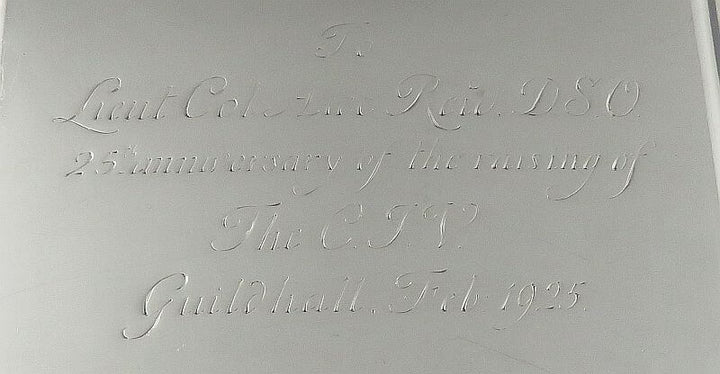 To
Lieut Col. Reid. D.S.O.
25th anniversary of the raising of
The C.I.V.
Guildhall. Feb. 1925.